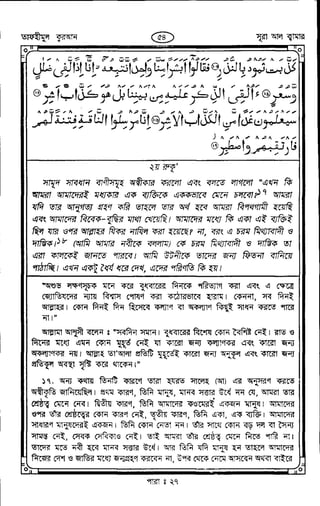 তাফহীমুল কুরআন
৫৪
সূরা আল ক্বামার
كَذَّبَتْ ثَمُودُ بِالنُّذُرِ ﴿٢٣﴾ فَقَالُوا أَبَشَرًا مِنَّا وَاحِدًا نَتَّبِعُهُ إِنَّا إِذًا لَفِي ضَلَالٍ
وَسُعُرٍ ﴿٢٤﴾ أَأُلْقِيَ الذِّكْرُ عَلَيْهِ مِنْ بَيْنِنَا بَلْ هُوَ كَذَّابٌ أَشِرٌ ﴿٢٥﴾
سَيَعْلَمُونَ غَدًا مَنِ الْكَذَّابُ الْأَشِرُ ﴿٢٦﴾ إِنَّا مُرْسِلُو النَّاقَةِ فِتْنَةً لَهُمْ
فَارْتَقِبْهُمْ وَاصْطَبِرْ ﴿٢٧﴾
২য় রুকূ'
সামূদ সাবধান বাণীসমূহ অস্বীকার করলো এবং বলতে লাগলো "এখন কি
আমরা আমাদেরই মধ্যকার এক ব্যক্তিকে এককভাবে মেনে চলবো?১৭ আমরা
যদি তার আনুগত্য গ্রহণ করি তাহলে তার অর্থ হবে আমরা বিপথগামী হয়েছি
এবং আমাদের বিবেক-বুদ্ধির মাথা খেয়েছি। আমাদের মধ্যে কি একা এই ব্যক্তিই
ছিল যার ওপর আল্লাহর যিকর নাযিল করা হয়েছে? না, বরং এ চরম মিথ্যাবাদী ও
দাম্ভিক।১৮ (আমি আমার নবীকে বললাম) কে চরম মিথ্যাবাদী ও দাম্ভিক তা
এরা কালকেই জানতে পারবে। আমি উটনীকে তাদের জন্য ফিতনা বানিয়ে
পাঠাচ্ছি। এখন একটু ধৈর্য ধরে দেখ, এদের পরিণতি কি হয়।
"অশুভ লক্ষণসূচক মনে করে বুধবারের দিনকে পরিত্যাগ করা এবং এ ক্ষেত্রে
জ্যোতিষদের ন্যায় বিশ্বাস পোষণ করা কঠোরভাবে হারাম। কেননা, সব দিনই
আল্লাহর। কোন দিনই দিন হিসেবে কল্যাণ বা অকল্যাণ কিছুই সাধন করতে পারে
না।"
আল্লামা আলুসী বলেন : "সবদিন সমান। বুধবারের বিশেষ কোন বৈশিষ্ট নেই। রাত ও
দিনের মধ্যে এমন কোন মুহূর্ত নেই যা কারো জন্য কল্যাণকর এবং কারো জন্য
অকল্যাণকর নয়। আল্লাহ তা'আলা প্রতিটি মুহূর্তেই কারো জন্য অনুকূল এবং কারো জন্য
প্রতিকূল অবস্থা সৃষ্টি করে থাকেন।"
১৭. অন্য কথায় তিনটি কারণে তারা হযরত সালেহ (আ) এর অনুসরণ করতে
অস্বীকৃতি জানিয়েছিল। প্রথম কারণ, তিনি মানুষ, মানব সত্তার উর্ধে নন যে, আমরা তার
শ্রেষ্ঠত্ব মেনে নেব। দ্বিতীয় কারণ, তিনি আমাদের কওমেরই একজন মানুষ। আমাদের
ওপর তাঁর শ্রেষ্ঠত্বের কোন কারণ নেই, তৃতীয় কারণ, তিনি একা, এক ব্যক্তি। আমাদের
সাধারণ মানুষদেরই একজন। তিনি কোন নেতা নন। তাঁর সাথে কোন বড় দল বা সৈন্য
সামন্ত নেই, সেবক সেবিকাও নেই। তাই আমরা তাঁর শ্রেষ্ঠত্ব মেনে নিতে পারি না।
তাদের মতে নবী হবে মানব সত্তার উর্ধে। আর তিনি যদি মানুষ হন তাহলে আমাদের
নিজের দেশ ও জাতির মধ্যে জন্মগ্রহণ করবেন না, উপর থেকে নেমে আসবেন অথবা বাইরের
পারা : ২৭